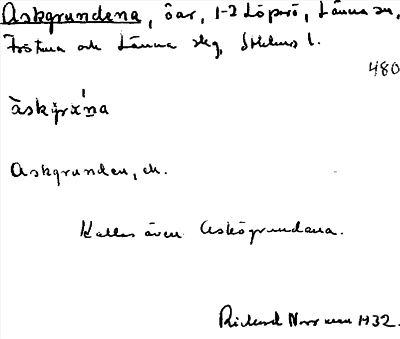 Askgrundena, öar, 1-2 Löparö, Länna sn,
Frötuna och Länna skg, Sthlms l.
480
àskg̀rx́na
Askgrunden, ek.
Kallas även Askögrundena.
Rickard Norrman 1932.